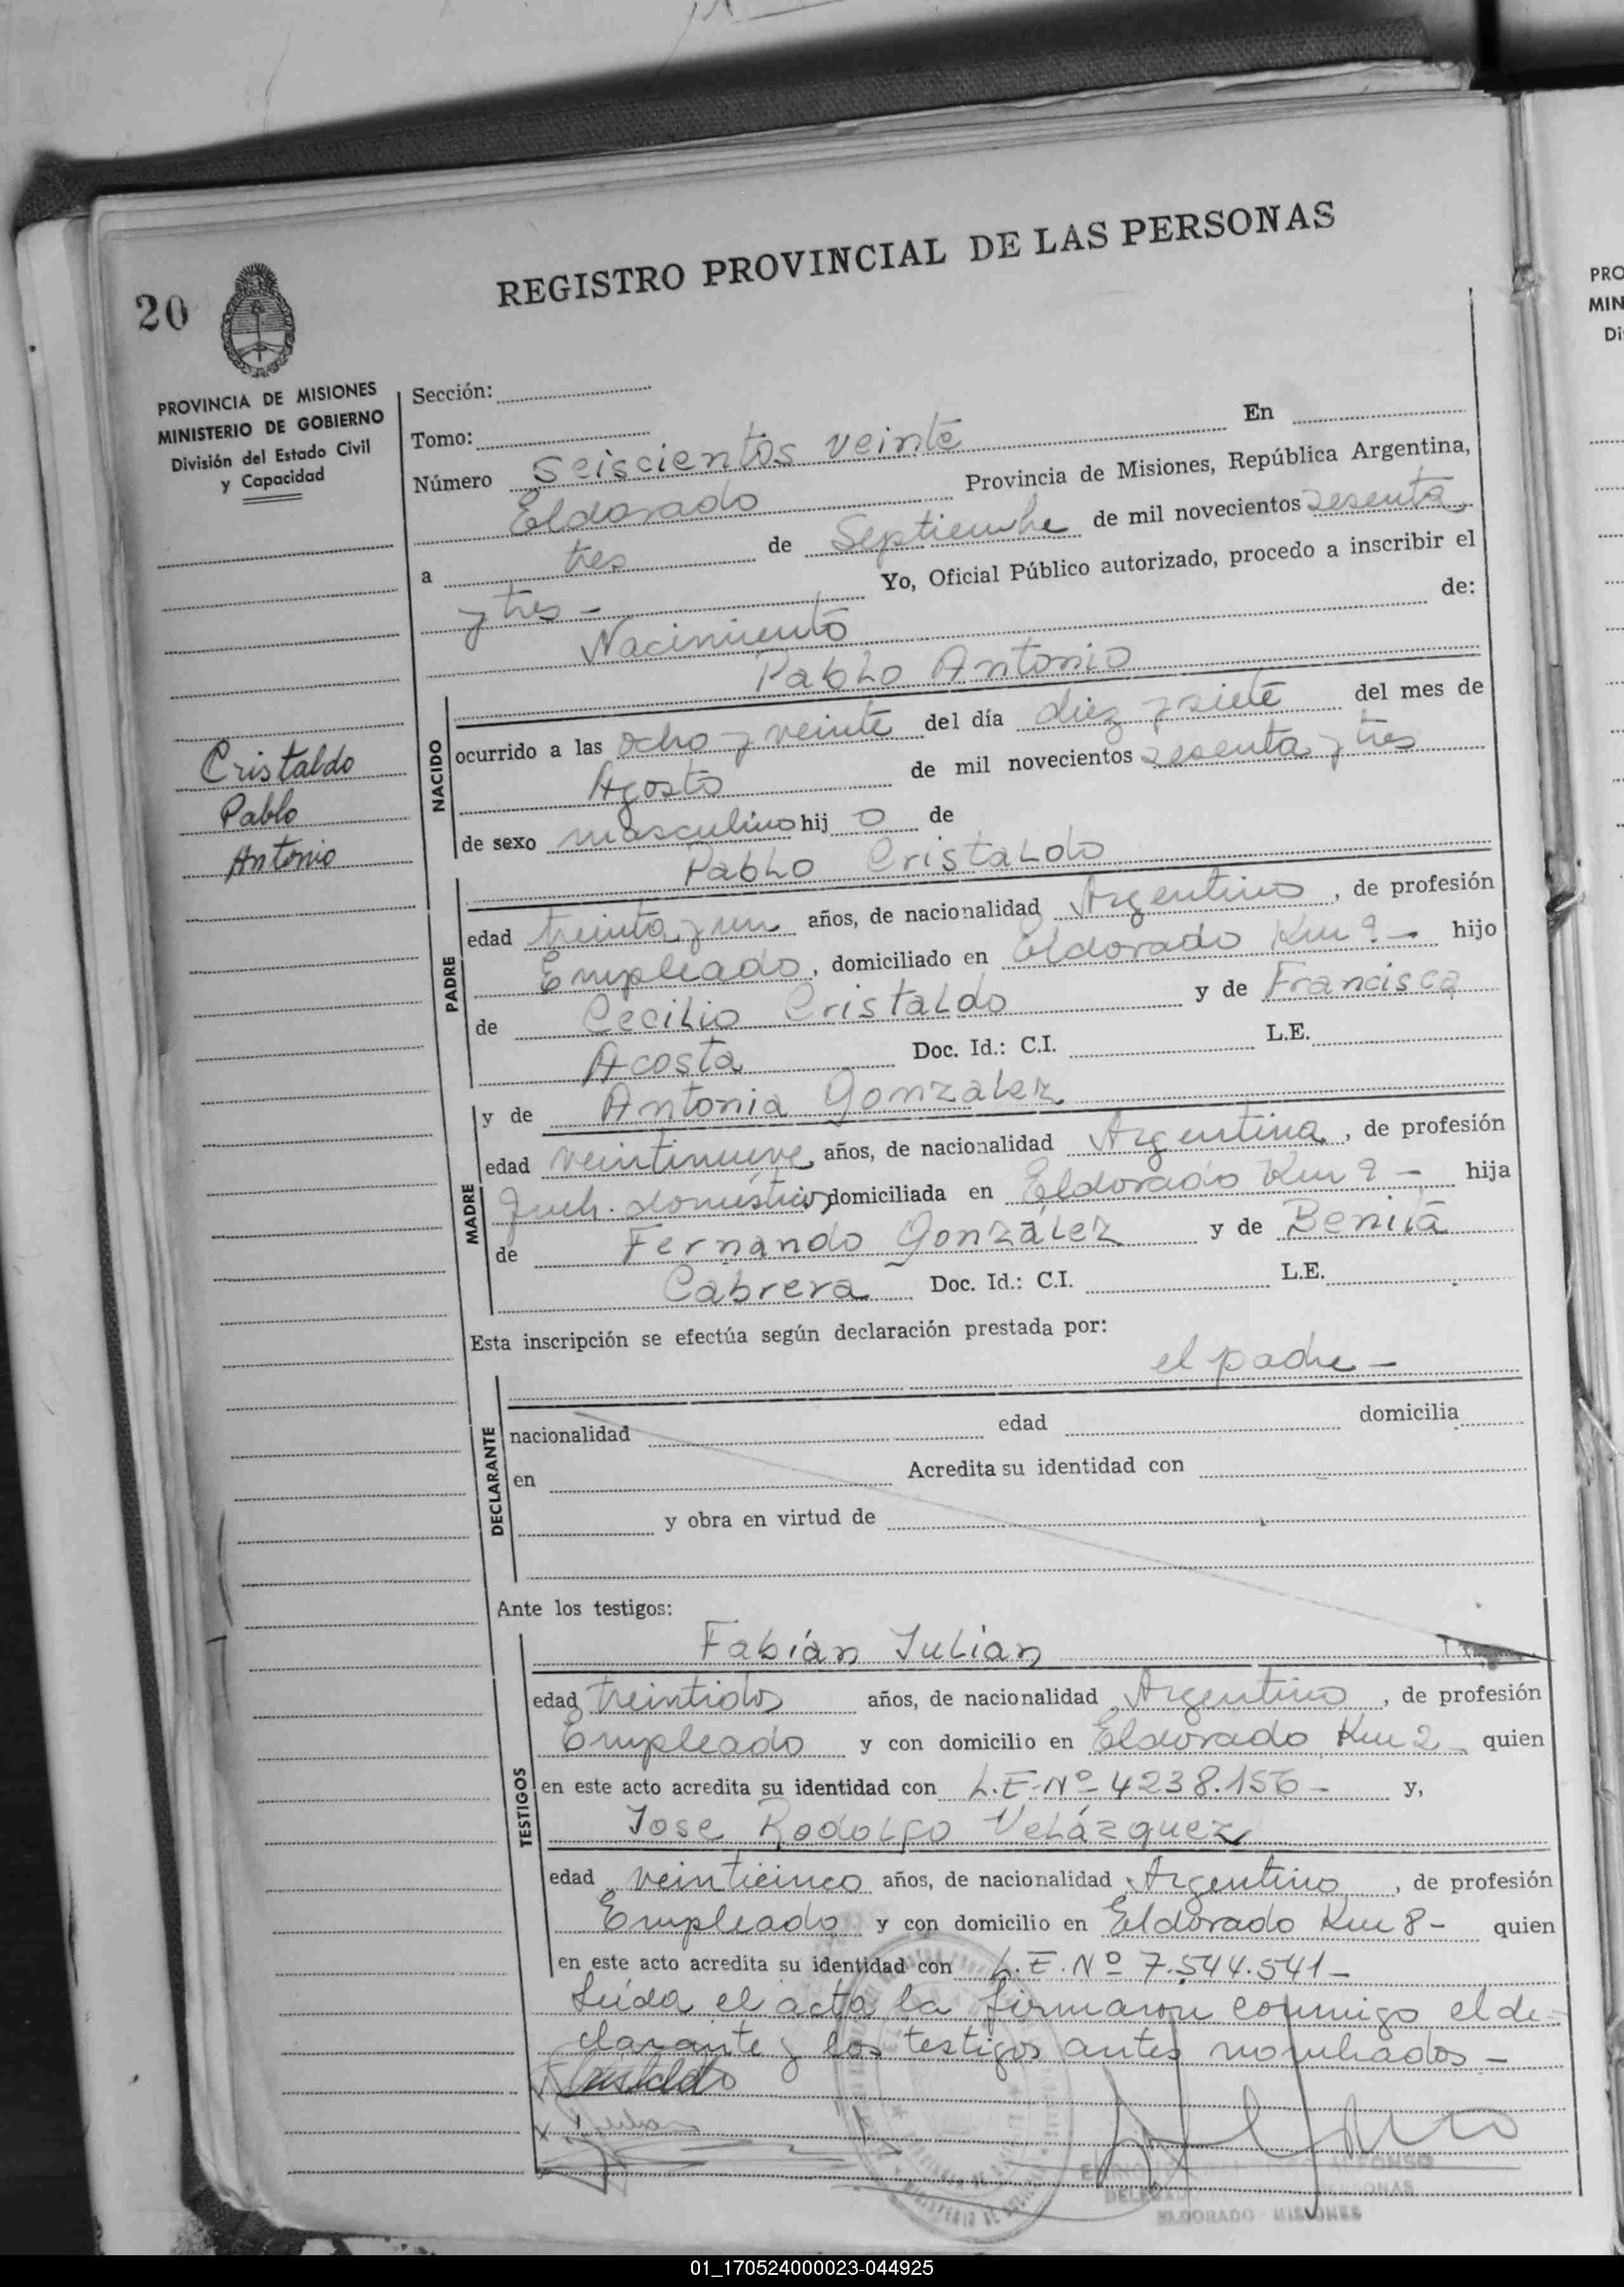 REGISTRO PROVINCIAL DE LAS PERSONAS
20
PROVINCIA DE MISIONES
MINISTERIO DE GOBIERNO
División del Estado Civil
y Capacidad
Cristaldo
Pablo
Antonio
Sección:
Tomo:
Número Seiscientos veinte En
Eldorado Provincia de Misiones, República Argentina,
a tres de Septiembre de mil novecientos sesenta
y tres - Yo, Oficial Público autorizado, procedo a inscribir el
Nacimiento de:
NACIDO
Pablo Antonio
ocurrido a las ocho y veinte del día diez y siete del mes de
Agosto de mil novecientos sesenta y tres
de sexo masculino hijo de
PADRE
Pablo Cristaldo
edad treinta y un años, de nacionalidad Argentino, de profesión
Empleado, domiciliado en Eldorado Km 9 - hijo
de Cecilio Cristaldo y de Francisca
Acosta Doc. Id.: C.I. L.E.
MADRE
y de Antonia Gonzalez
edad veintinueve años, de nacionalidad Argentina, de profesión
Queh. domésticos domiciliada en Eldorado Km 9 - hija
de Fernando González y de Benita
Cabrera Doc. Id.: C.I. L.E.
Esta inscripción se efectúa según declaración prestada por:
el padre -
DECLARANTE
nacionalidad edad domicilia
en Acredita su identidad con
y obra en virtud de
Ante los testigos:
TESTIGOS
Fabián Julian
edad treintidos años, de nacionalidad Argentino, de profesión
Empleado y con domicilio en Eldorado Km 2 - quien
en este acto acredita su identidad con L.E. Nº 4238.156 - y,
Jose Rodolfo Velázquez
edad veinticinco años, de nacionalidad Argentino, de profesión
Empleado y con domicilio en Eldorado Km 8 - quien
en este acto acredita su identidad con L.E. Nº 7.544.541 -
Leída el acta la firmaron conmigo el de-
clarante y los testigos antes nombrados -
Cristaldo
ELDORADO - MISIONES
PRO
MIN
Di
01_170524000023-044925